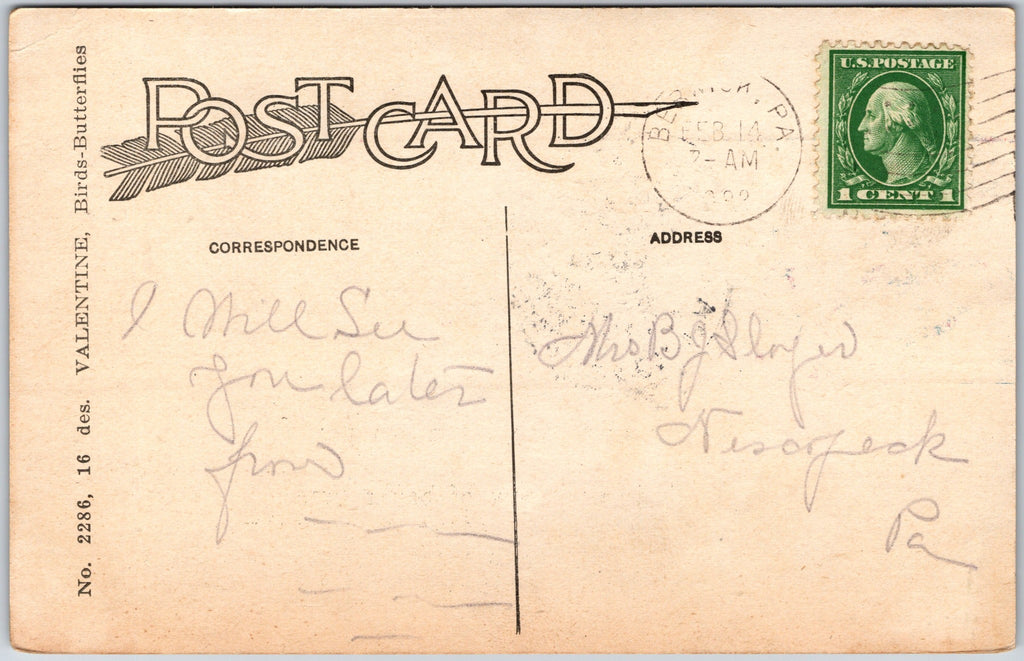 POST CARD
BERWICK, PA.
FEB. 14
2-AM
U.S. POSTAGE
1 CENT 1
CORRESPONDENCE
ADDRESS
No. 2286, 16 des. VALENTINE, Birds-Butterflies
I Will See
You later
from
Mrs B J Sloyer
Nescopeck
Pa